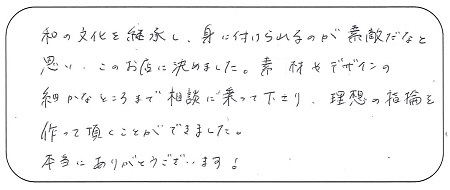 和の文化を継承し、身に付けられるのが素敵だなと
思い、このお店に決めました。素材やデザインの
細かなところまで相談に乗って下さり、理想の指輪を
作って頂くことができました。
本当にありがとうございます!